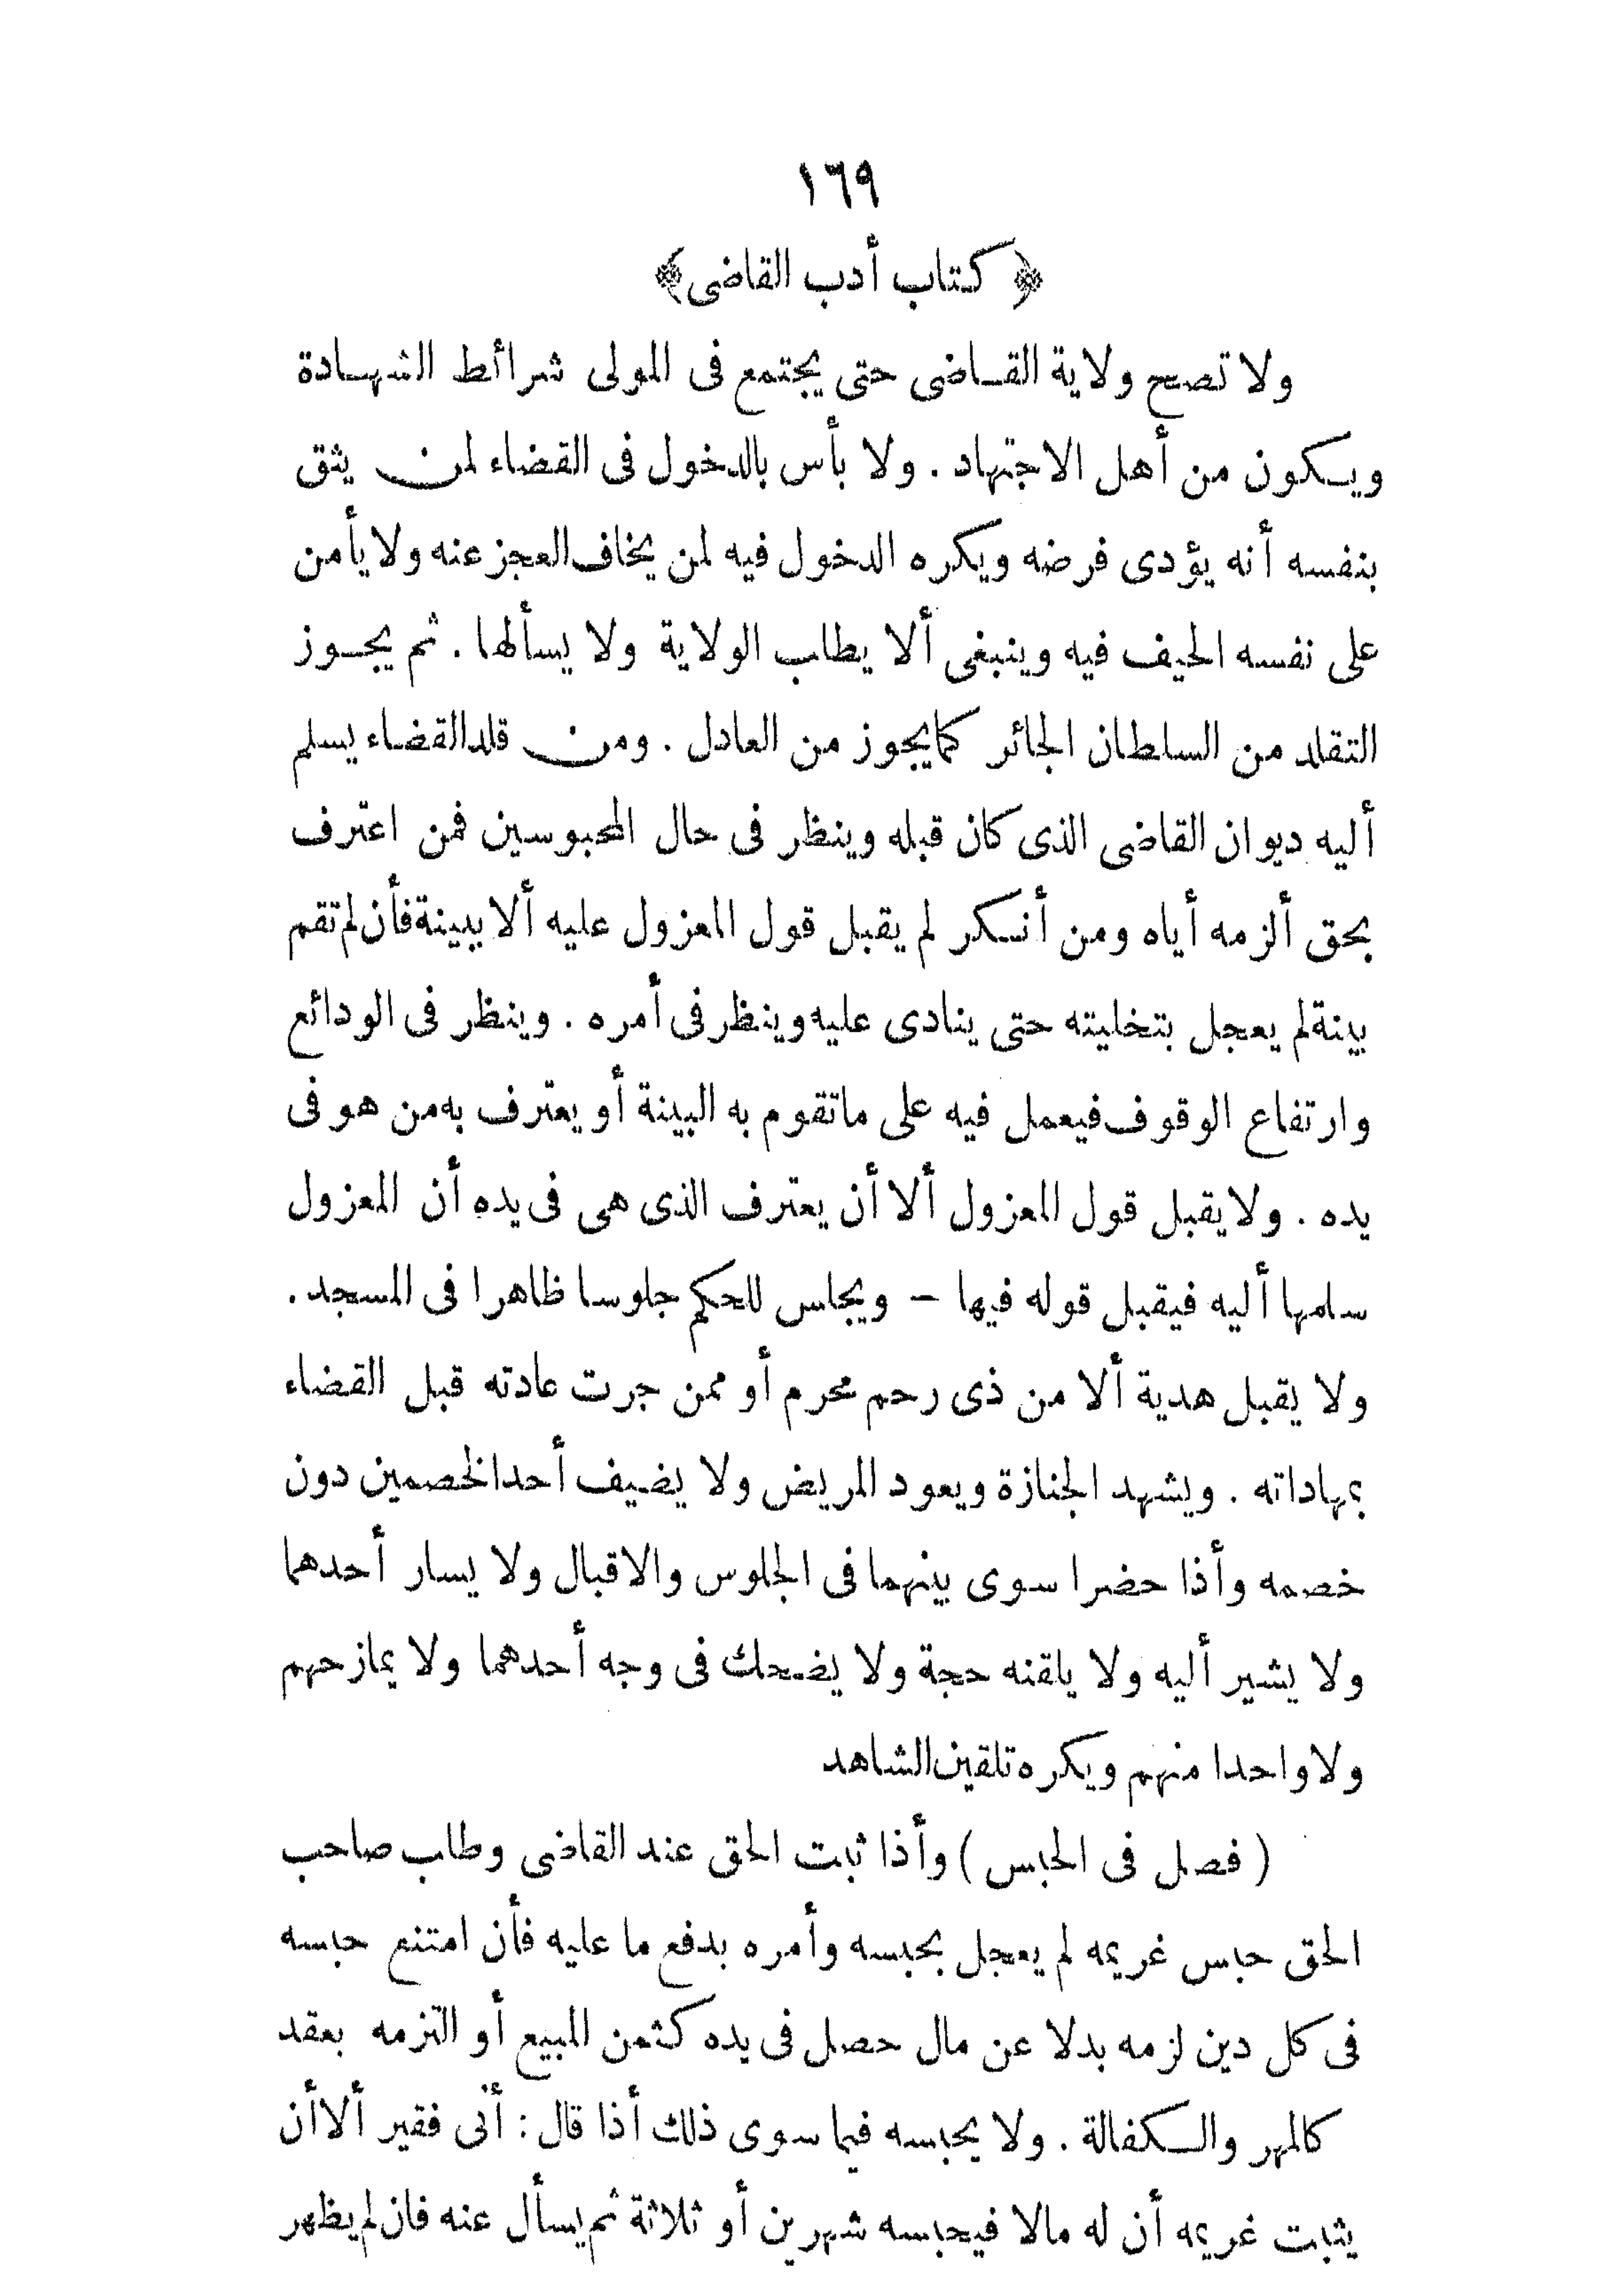 ١٦٩
﴿ كتاب أدب القاضى ﴾
ولا تصح ولاية القاضى حتى يجتمع فى المولى شرائط الشهادة
ويكون من أهل الاجتهاد . ولا بأس بالدخول فى القضاء لمن يثق
بنفسه أنه يؤدى فرضه ويكره الدخول فيه لمن يخاف العجز عنه ولا يأمن
على نفسه الحيف فيه وينبغى ألا يطلب الولاية ولا يسألها . ثم يجوز
التقلد من السلطان الجائر كما يجوز من العادل . ومن قلد القضاء يسلم
أليه ديوان القاضى الذى كان قبله وينظر فى حال المحبوسين فمن اعترف
بحق ألزمه أياه ومن أنكر لم يقبل قول المعزول عليه ألا ببينة فأن لم تقم
بينة لم يعجل بتخليته حتى ينادى عليه وينظر فى أمره . وينظر فى الودائع
وارتفاع الوقوف فيعمل فيه على ماتقوم به البينة أو يعترف به من هو فى
يده . ولا يقبل قول المعزول ألا أن يعترف الذى هى فى يده أن المعزول
سلمها أليه فيقبل قوله فيها – ويجلس للحكم جلوسا ظاهرا فى المسجد .
ولا يقبل هدية ألا من ذى رحم محرم أو ممن جرت عادته قبل القضاء
بمهاداته . ويشهد الجنازة ويعود المريض ولا يضيف أحد الخصمين دون
خصمه وأذا حضرا سوى بينهما فى الجلوس والاقبال ولا يسار أحدهما
ولا يشير أليه ولا يلقنه حجة ولا يضحك فى وجه أحدهما ولا يمازحهم
ولا واحدا منهم ويكره تلقين الشاهد
( فصل فى الحبس ) وأذا ثبت الحق عند القاضى وطلب صاحب
الحق حبس غريمه لم يعجل بحبسه وأمره بدفع ما عليه فأن امتنع حبسه
فى كل دين لزمه بدلا عن مال حصل فى يده كثمن المبيع أو التزمه بعقد
كالمهر والكفالة . ولا يحبسه فيما سوى ذلك أذا قال : أنى فقير ألا أن
يثبت غريمه أن له مالا فيحبسه شهرين أو ثلاثة ثم يسأل عنه فان لم يظهر